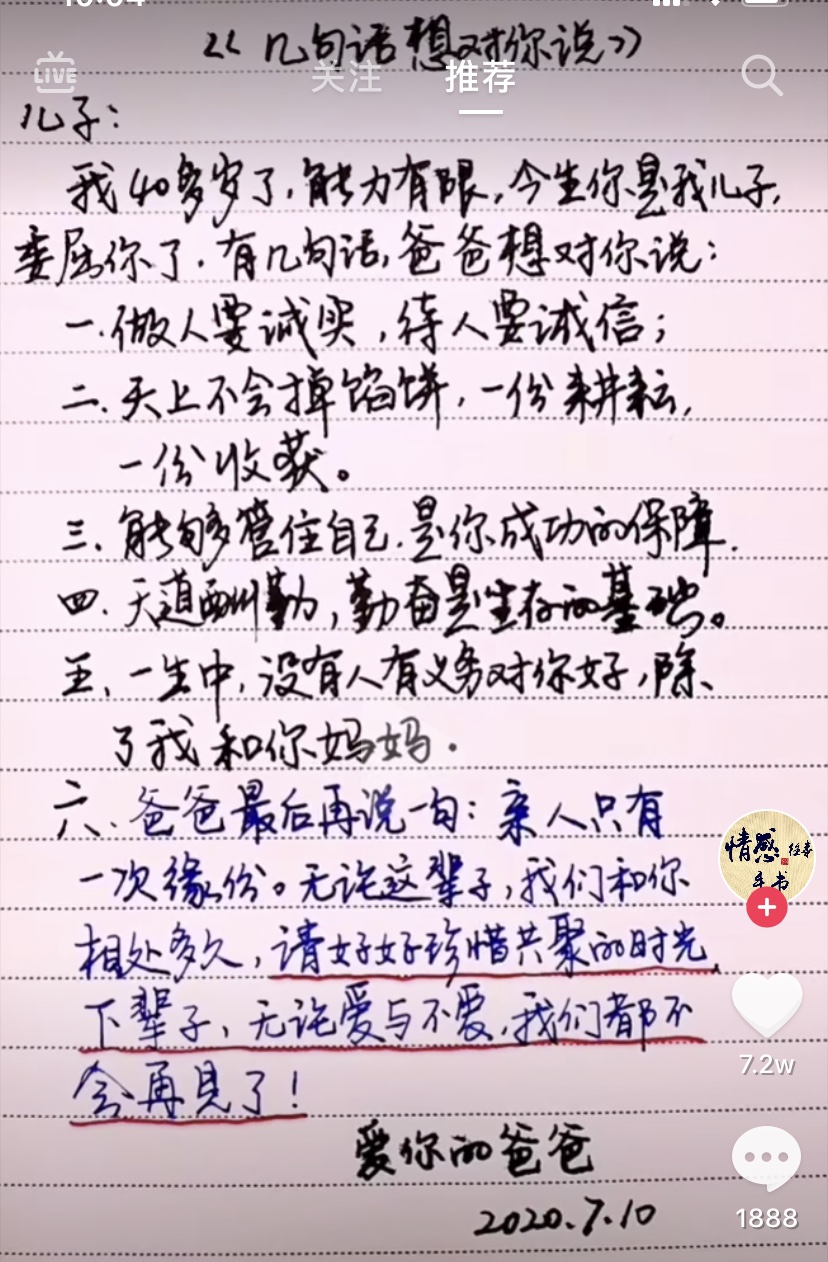 《几句话想对你说》
LIVE
关注 推荐
儿子：
我40多岁了，能力有限，今生你是我儿子，
委屈你了。有几句话，爸爸想对你说：
一.做人要诚实，待人要诚信；
二.天上不会掉馅饼，一份耕耘，
一份收获。
三.能够管住自己，是你成功的保障.
四.天道酬勤，勤奋是生存的基础。
五、一生中，没有人有义务对你好，除、
了我和你妈妈.
六、爸爸最后再说一句：亲人只有
一次缘份。无论这辈子，我们和你
相处多久，请好好珍惜共聚的时光，
下辈子，无论爱与不爱，我们都不
会再见了！
爱你的爸爸
2020.7.10
情感
手书
7.2w
1888